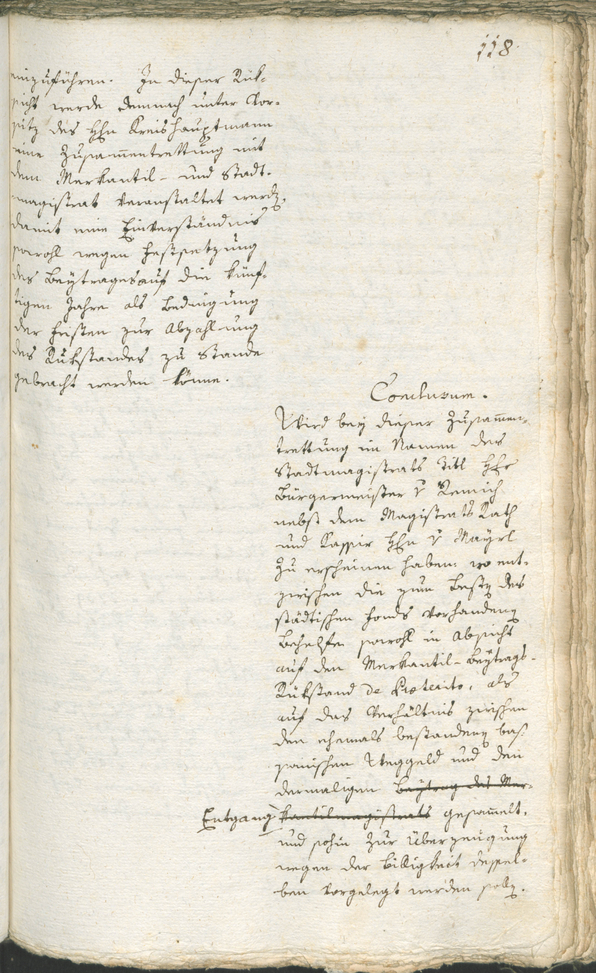 118.
einzuführen. In dieser Rük-
sicht werde demnach unter Vor-
sitz des Hhn Kreishauptmann
eine Zusammentrettung mit
dem Merkantil- und Stadt-
magistrat veranstaltet werdẽ,
damit eine Einverständnis
sowohl wegen Festsetzung
des Beytrages auf die künf-
tigen Jahre als Bedingung
der Fristen zur Abzahlung
des Rükstandes zu Stande
gebracht werden könne.
Conclusum.
Wird bey dieser Zusam̅en-
trettung im Namen des
Stadtmagistrats Titl Hhr
Bürgermeister v Remich
nebst dem Magistrats Rath
und Kassir Hhn v Mayrl
zu erscheinen haben, wo ent-
zwischen die zum Besten des
städtischen Fonds vorhandenen
Behelfe sowohl in Absicht
auf den Merkantil-Beytrags-
Rükstand de Præterito, als
auf das Verhältnis zwischen
den ehemals bestandenen bas-
sanischen Weggeld und den
dermaligen Beytrag des Mer-
Entgang kantilmagistrats gesam̅elt,
und sohin zur Überzeugung
wegen der Billigkeit dessel-
ben vorgelegt werden solln.